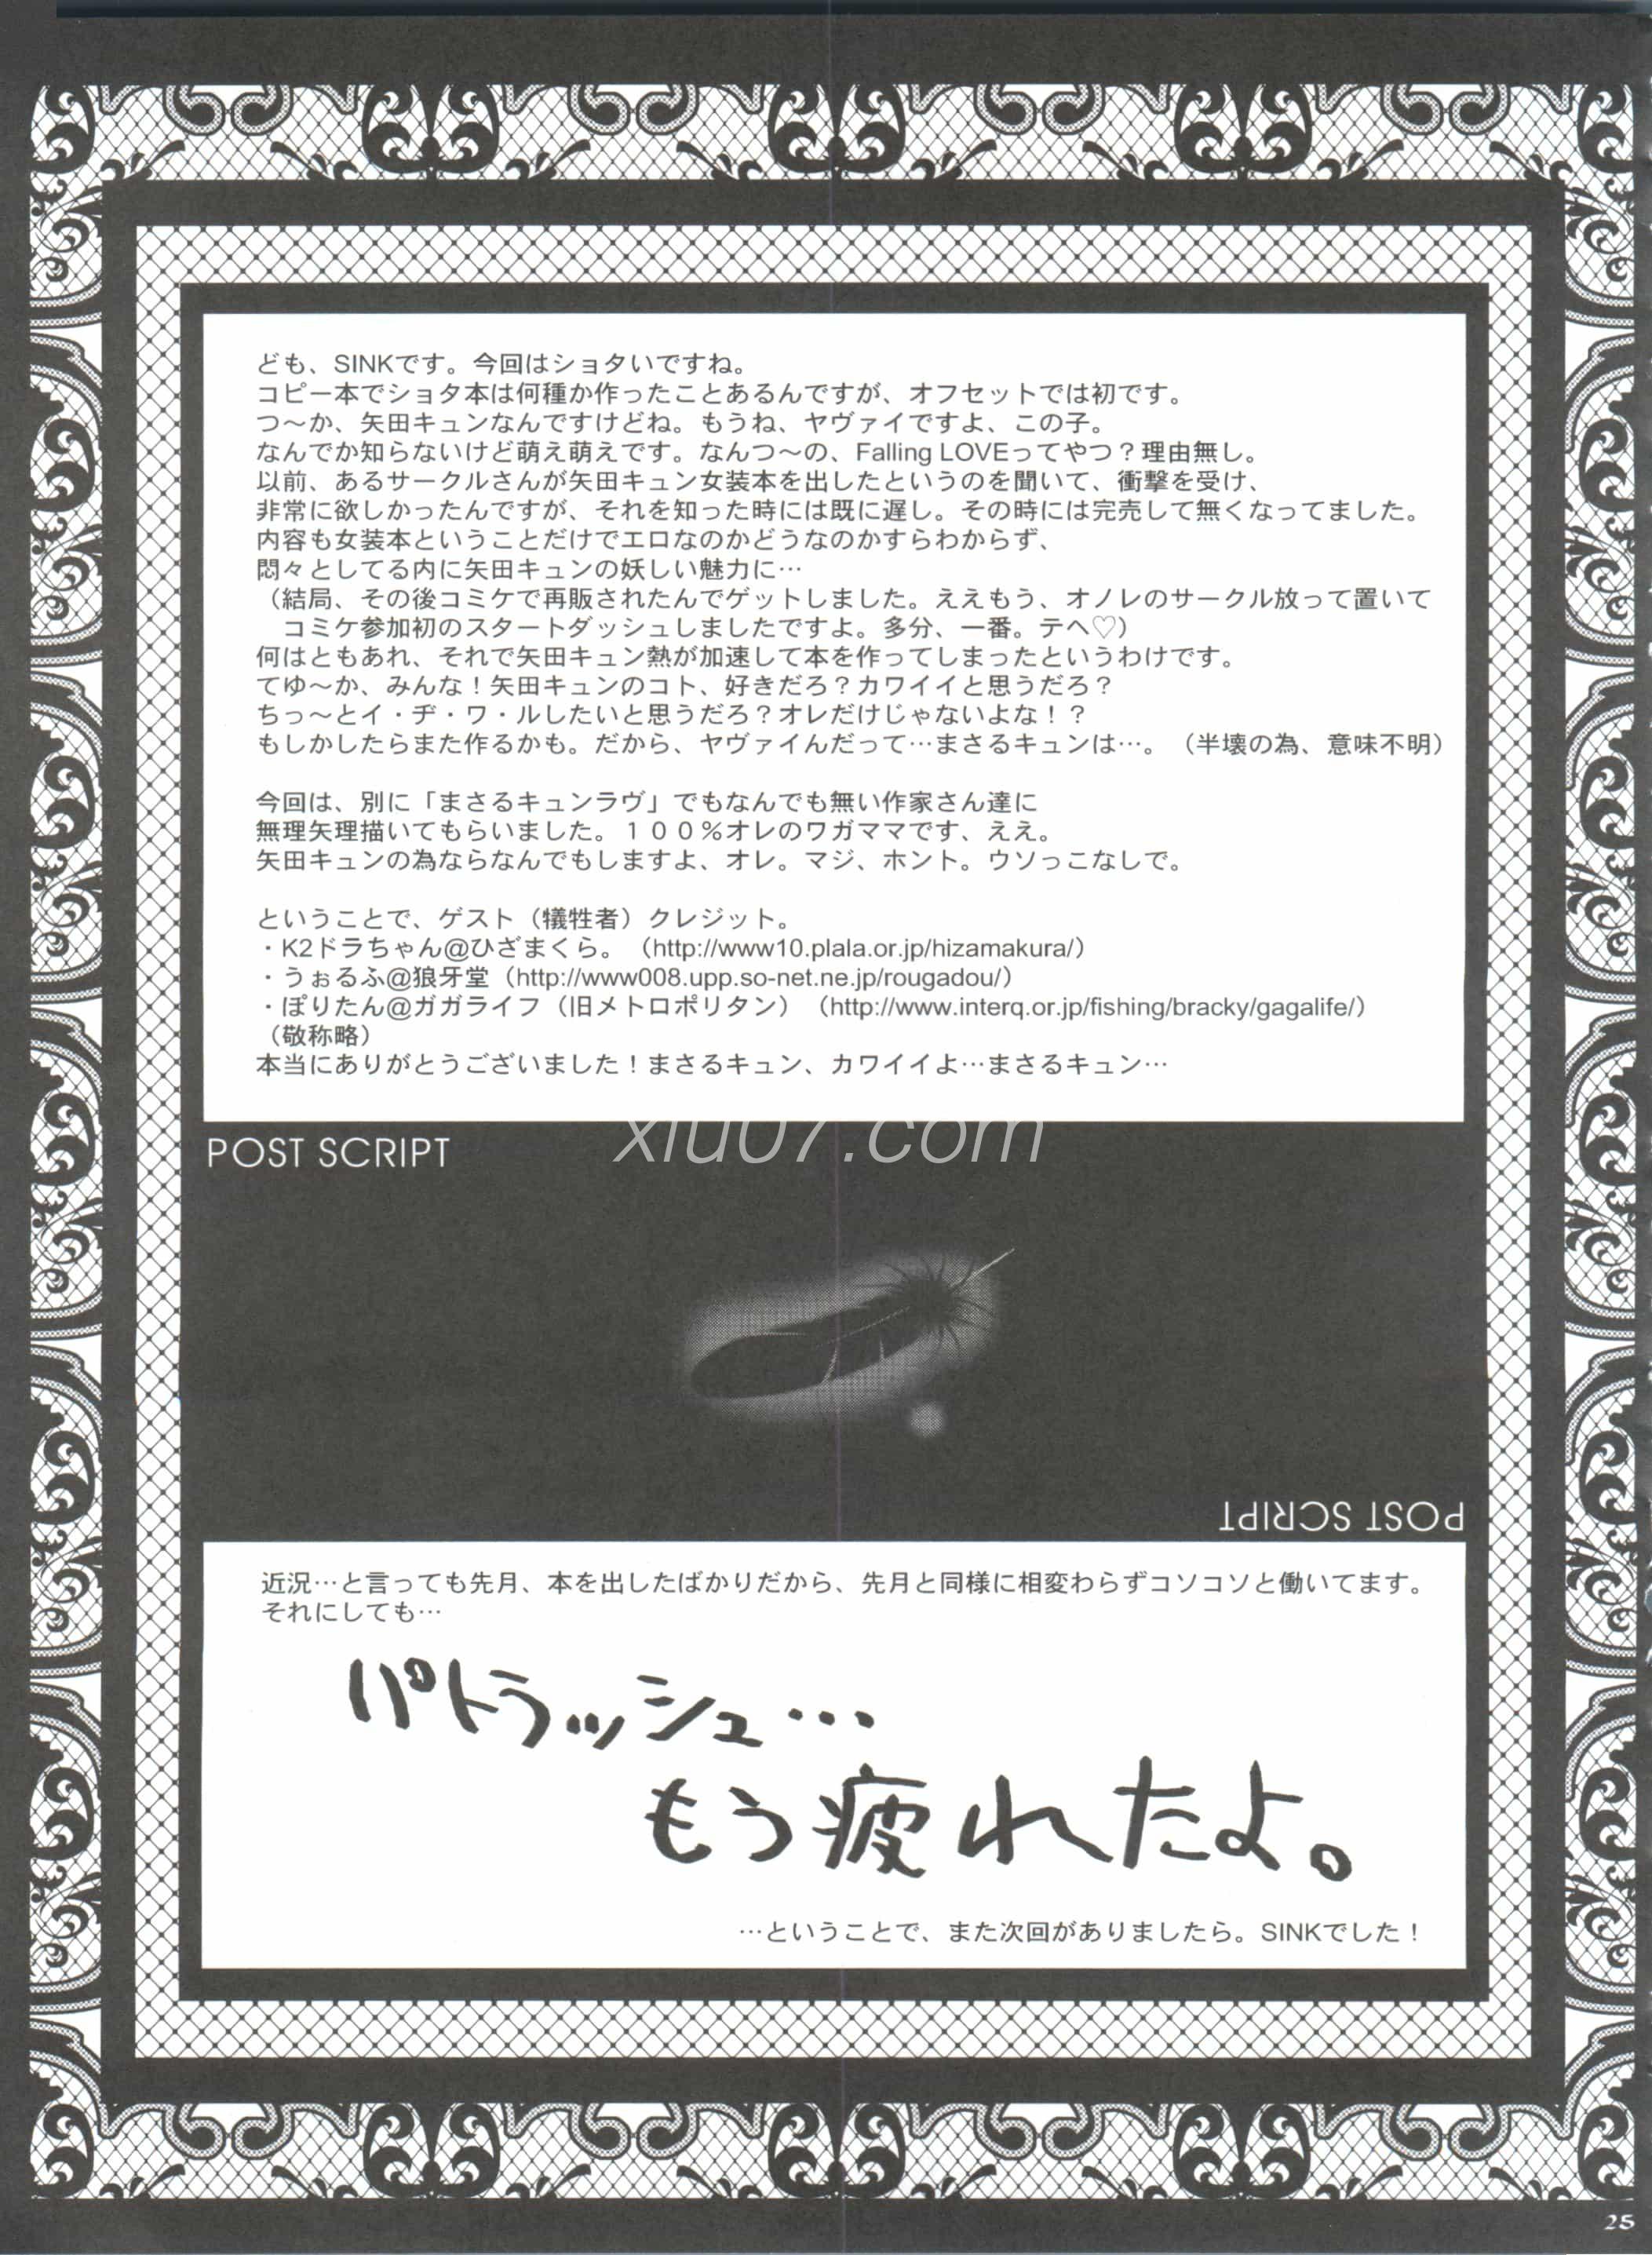 ども、SINKです。今回はショタいですね。
コピー本でショタ本は何種か作ったことあるんですが、オフセットでは初です。
つ～か、矢田キュンなんですけどね。もうね、ヤヴァイですよ、この子。
なんでか知らないけど萌え萌えです。なんつ～の、Falling LOVEってやつ？理由無し。
以前、あるサークルさんが矢田キュン女装本を出したというのを聞いて、衝撃を受け、
非常に欲しかったんですが、それを知った時には既に遅し。その時には完売して無くなってました。
内容も女装本ということだけでエロなのかどうなのかすらわからず、
悶々としてる内に矢田キュンの妖しい魅力に…
（結局、その後コミケで再販されたんでゲットしました。ええもう、オノレのサークル放って置いて
コミケ参加初のスタートダッシュしましたですよ。多分、一番。テヘ♡）
何はともあれ、それで矢田キュン熱が加速して本を作ってしまったというわけです。
てゆ～か、みんな！矢田キュンのコト、好きだろ？カワイイと思うだろ？
ちっ～とイ・ヂ・ワ・ルしたいと思うだろ？オレだけじゃないよな！？
もしかしたらまた作るかも。だから、ヤヴァイんだって…まさるキュンは…。（半壊の為、意味不明）
今回は、別に「まさるキュンラヴ」でもなんでも無い作家さん達に
無理矢理描いてもらいました。１００％オレのワガママです、ええ。
矢田キュンの為ならなんでもしますよ、オレ。マジ、ホント。ウソっこなしで。
ということで、ゲスト（犠牲者）クレジット。
・K2ドラちゃん@ひざまくら。（http://www10.plala.or.jp/hizamakura/）
・うぉるふ@狼牙堂（http://www008.upp.so-net.ne.jp/rougadou/）
・ぽりたん@ガガライフ（旧メトロポリタン）（http://www.interq.or.jp/fishing/bracky/gagalife/）
（敬称略）
本当にありがとうございました！まさるキュン、カワイイよ…まさるキュン…
POST SCRIPT
xiu07.com
POST SCRIPT
近況…と言っても先月、本を出したばかりだから、先月と同様に相変わらずコソコソと働いてます。
それにしても…
パトラッシュ…
もう疲れたよ。
…ということで、また次回がありましたら。SINKでした！
25